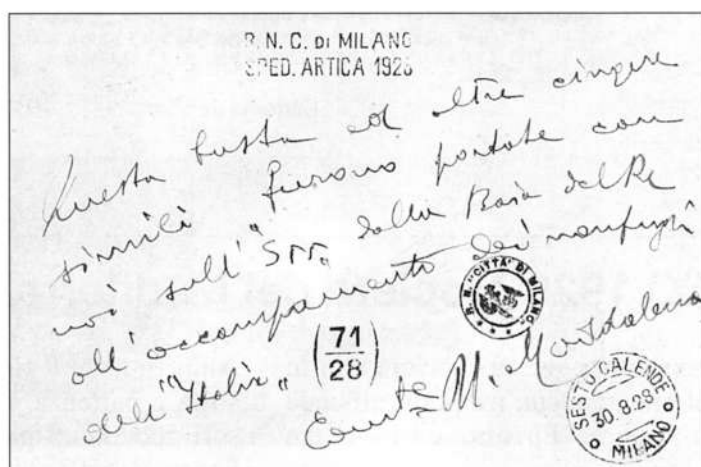 R. N. C. di MILANO
SPED. ARTICA 1928
Questa busta ed altre cinque
simili furono portate con
noi sull' "S55" dalla Baia del Re
all'accampamento dei naufraghi
dell' "Italia"
(71/28)
R. N. "CITTÀ" DI MILANO
Maddalena
SESTO CALENDE
30.8.28
MILANO